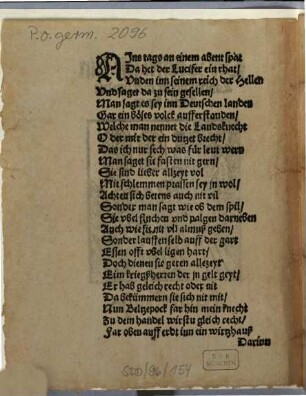 P.o. germ. 2096
AIns tags an einem abent spat
Da het der Lucifer ein rhat/
Vnden inn seinem reich der Hellen
Vnd saget da zu sein gesellen/
Man sagt es sey inn Deutschen landen
Gar ein böses volck aufferstanden/
Welche man nennet die Landsknecht
O der mir der ein dutzet brecht/
Das ich nur sech was für leut wern
Man saget sie fasten nit gern/
Sie sind lieber allzeyt vol
Mit schlemmen prassen sey jn wol/
Achten sich betens auch nit vil
Sonder man sagt wie ob dem spil/
Sie vbel fluchen vnd palgen darneben
Auch wie sie nit vil almuß geben/
Sonder lauffen selb auff der gart
Essen offt vbel ligen hart/
Doch dienen sie geren allezeyt
Eim kriegßherren der jn gelt geyt/
Er hab geleich recht oder nit
Da bekümmern sie sich nit mit/
Nun Beltzepock far hin mein knecht
Zu dem handel wirstu gleich recht/
Far oben auff erdt inn ein wirtzhauß
Darinn
BSB
MÜNCHEN